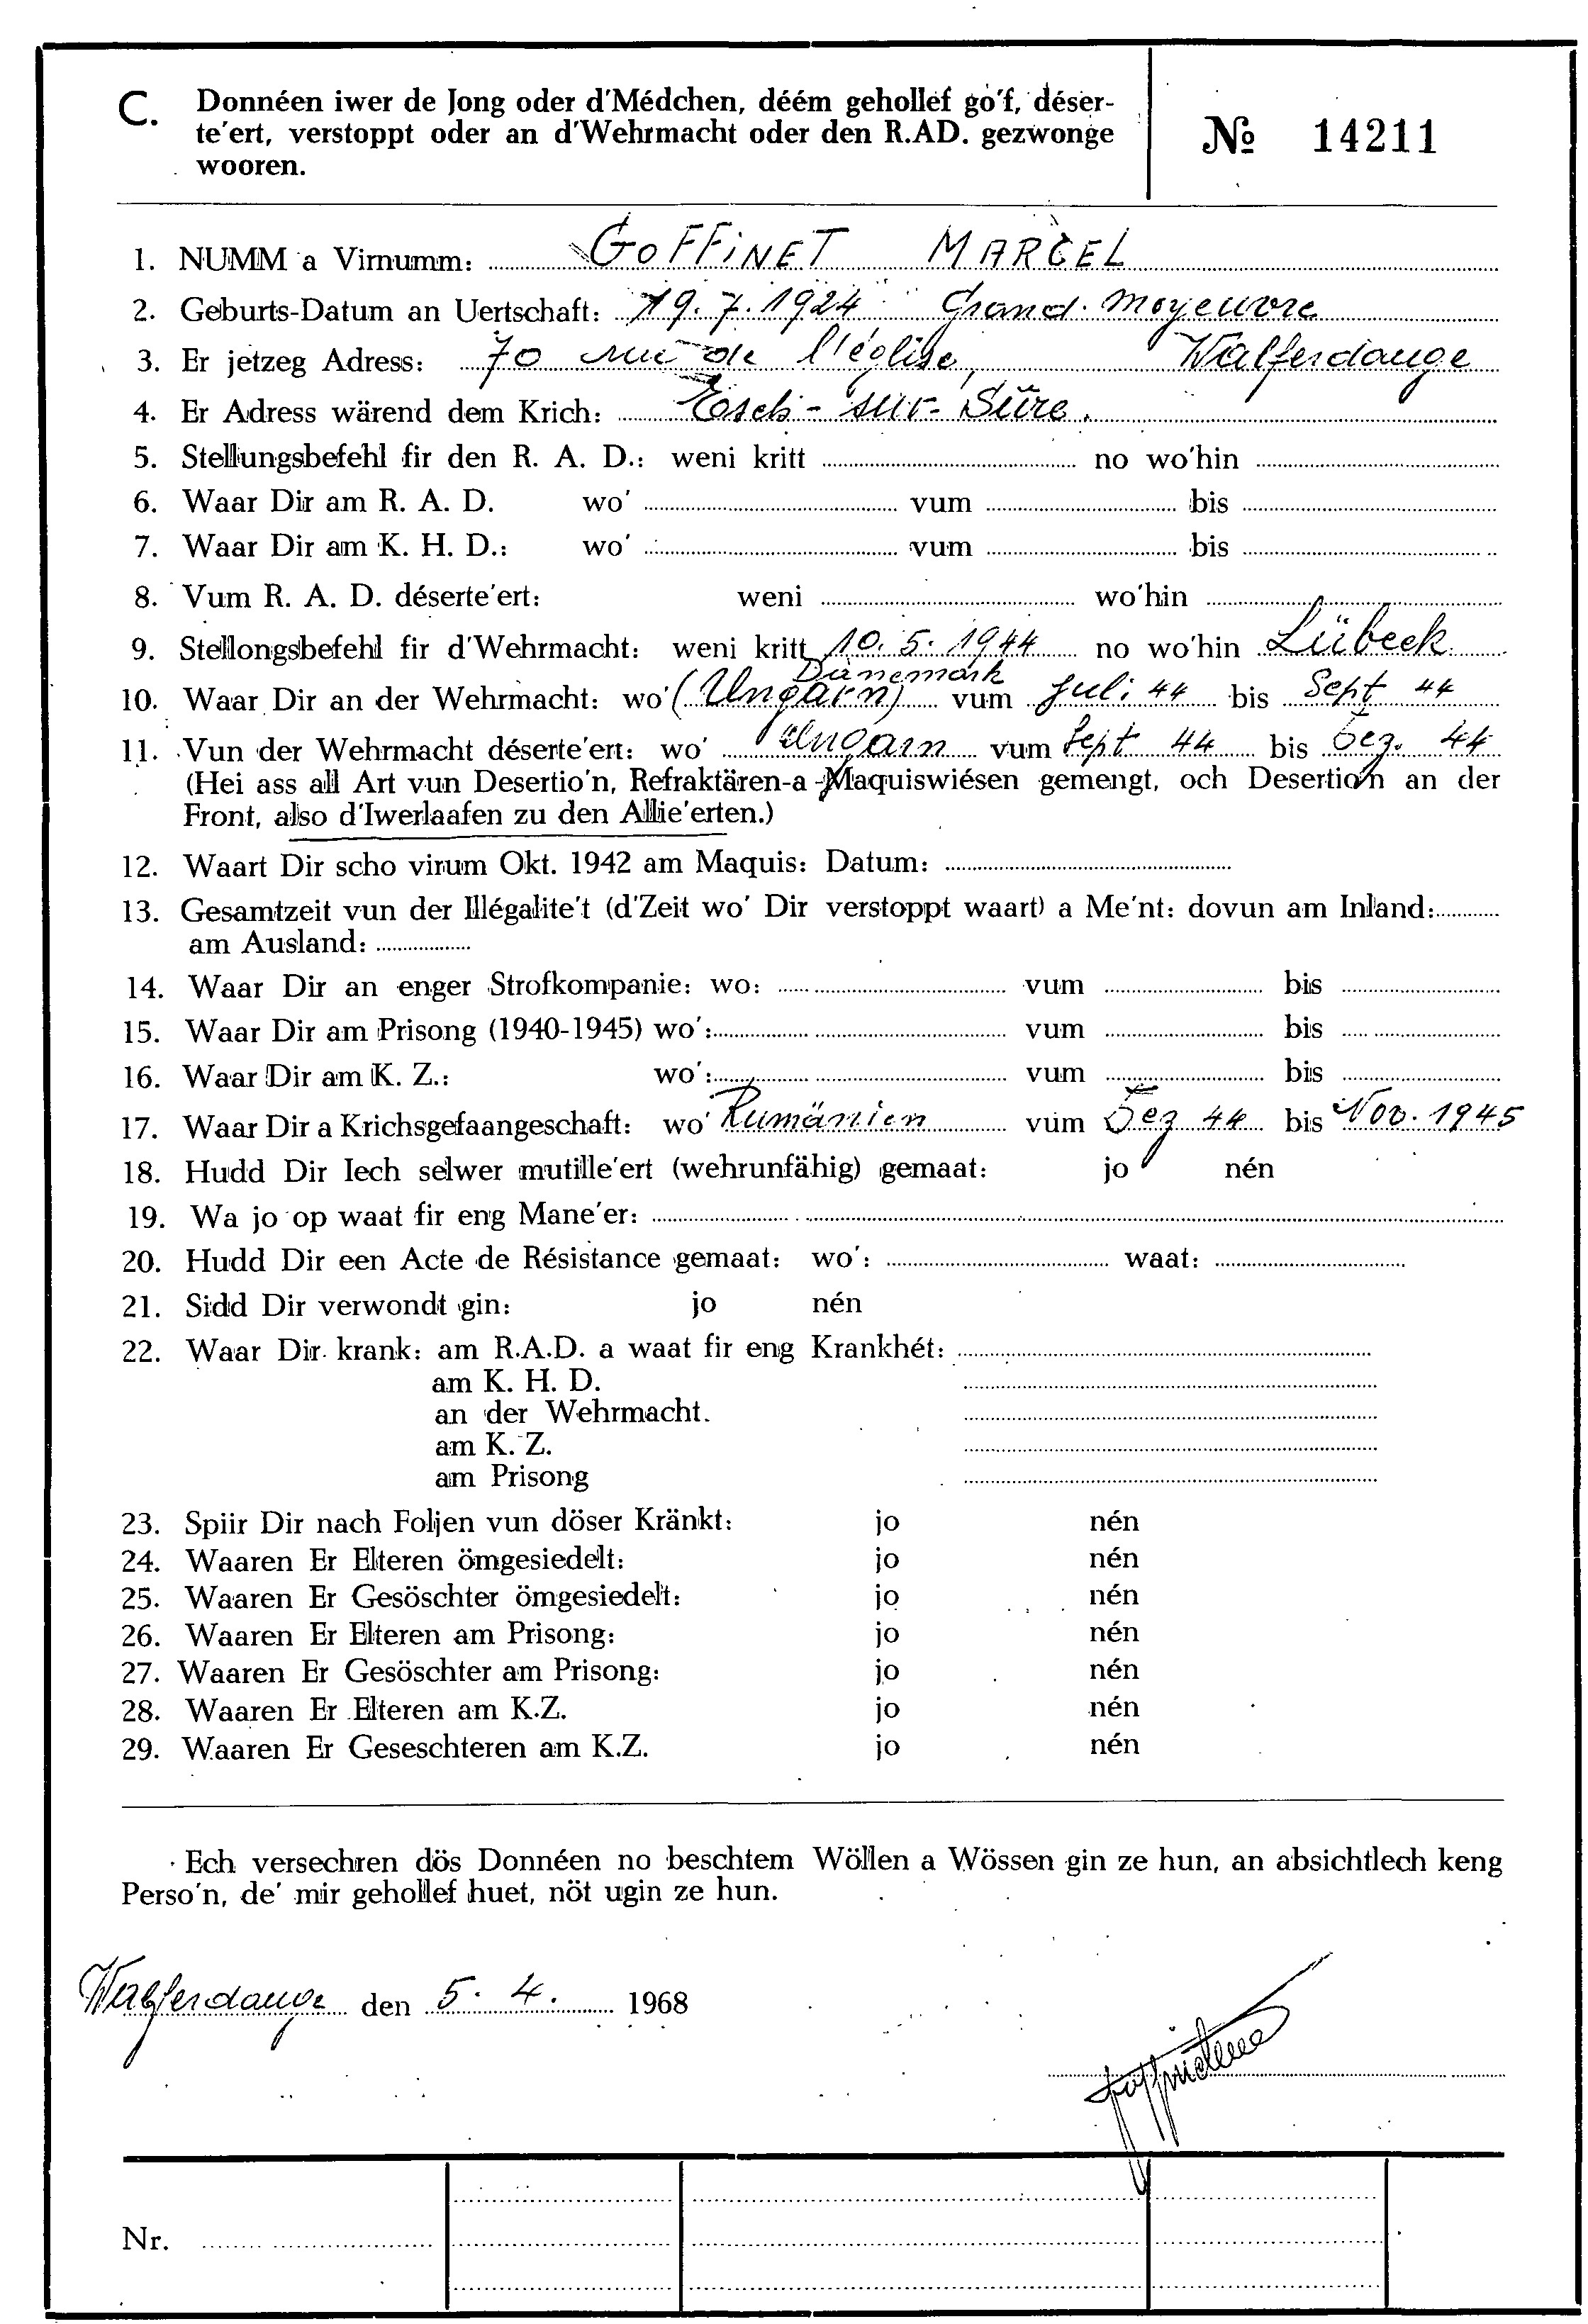 C. Donnéen iwer de Jong oder d'Médchen, déém gehollef go'f, déser-
te'ert, verstoppt oder an d'Wehrmacht oder den R.AD. gezwonge
wooren.
№ 14211
1. NUMM a Virnumm: GOFFINET MARCEL
2. Geburts-Datum an Uertschaft: 19.7.1924 Grand. Moyeuvre
3. Er jetzeg Adress: 70 rue de l'église, Walferdange
4. Er Adress wärend dem Krich: Esch-sur-Sûre.
5. Stellungsbefehl fir den R. A. D.: weni kritt no wo'hin
6. Waar Dir am R. A. D. wo' vum bis
7. Waar Dir am K. H. D.: wo' vum bis
8. Vum R. A. D. déserte'ert: weni wo'hin
9. Stellongsbefehl fir d'Wehrmacht: weni kritt 10.5.1944 no wo'hin Lübeck
Dänemark
10. Waar Dir an der Wehrmacht: wo' (Ungarn) vum Juli 44 bis Sept 44
11. Vun der Wehrmacht déserte'ert: wo' Ungarn vum Sept 44 bis Dez. 44
(Hei ass all Art vun Desertio'n, Refraktären-a -Maquiswiésen gemengt, och Desertio'n an der
Front, also d'Iwerlaafen zu den Allie'erten.)
12. Waart Dir scho virum Okt. 1942 am Maquis: Datum:
13. Gesamtzeit vun der Illégalite't (d'Zeit wo' Dir verstoppt waart) a Me'nt: dovun am Inland:
am Ausland:
14. Waar Dir an enger Strofkompanie: wo: vum bis
15. Waar Dir am Prisong (1940-1945) wo': vum bis
16. Waar Dir am K. Z.: wo': vum bis
17. Waar Dir a Krichsgefaangeschaft: wo' Rumänien vum Dez 44 bis Nov. 1945
18. Hudd Dir Iech selwer mutille'ert (wehrunfähig) gemaat: jo nén
19. Wa jo op waat fir eng Mane'er:
20. Hudd Dir een Acte de Résistance gemaat: wo': waat:
21. Sidd Dir verwondt gin: jo nén
22. Waar Dir krank: am R.A.D. a waat fir eng Krankhét:
am K. H. D.
an der Wehrmacht.
am K. Z.
am Prisong
23. Spiir Dir nach Foljen vun döser Kränkt: jo nén
24. Waaren Er Elteren ömgesiedelt: jo nén
25. Waaren Er Gesöschter ömgesiedelt: jo nén
26. Waaren Er Elteren am Prisong: jo nén
27. Waaren Er Gesöschter am Prisong: jo nén
28. Waaren Er Elteren am K.Z. jo nén
29. Waaren Er Geseschteren am K.Z. jo nén
Ech versechren dös Donnéen no beschtem Wöllen a Wössen gin ze hun, an absichtlech keng
Perso'n, de' mir gehollef huet, nöt ugin ze hun.
Walferdange den 5. 4. 1968
Nr.